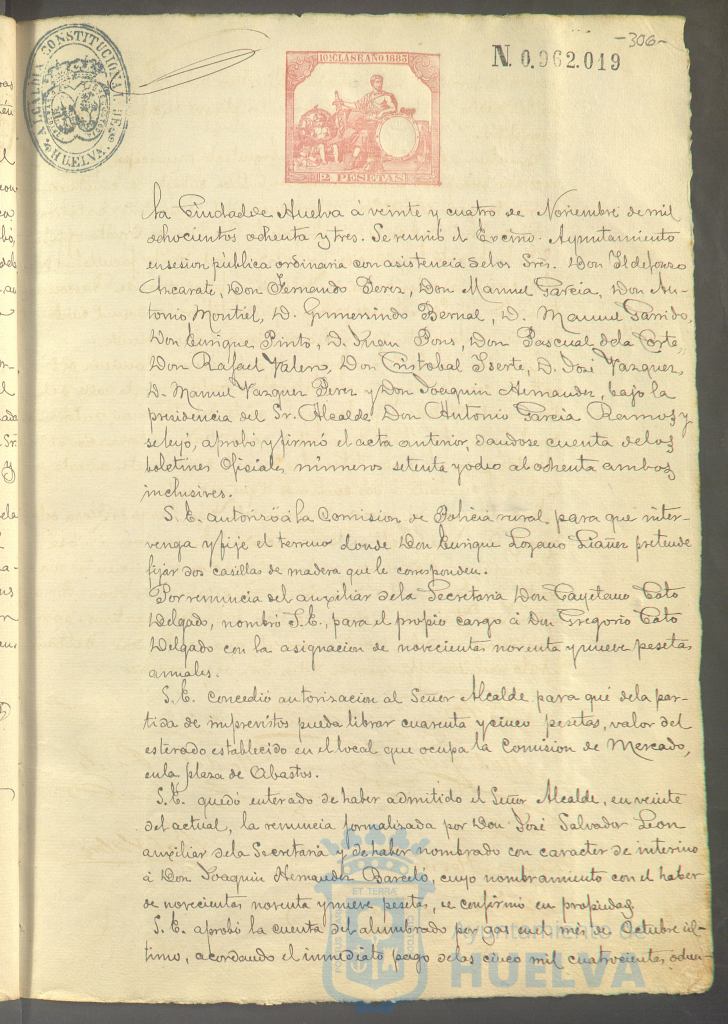 -306-
N. 0.962.019
ALCALDIA CONSTITUCIONAL DE HUELVA
10ª CLASE AÑO 1883
2 PESETAS
En la Ciudad de Huelva á veinte y cuatro de Noviembre de mil
ochocientos ochenta y tres. Se reunió el Excmo. Ayuntamiento
en sesion publica ordinaria con asistencia de los Sres. Don Ildefonso
Azcarate, Don Fernando Perez, Don Manuel Garcia, Don An-
tonio Montiel, D. Gumersindo Bernal, D. Manuel Garrido,
Don Enrique Pinto, D. Juan Pons, Don Pascual de la Corte,
Don Rafael Valero, Don Cristobal Iserte, D. José Vazquez,
D. Manuel Vazquez Perez y Don Joaquin Hernandez, bajo la
presidencia del Sr. Alcalde Don Antonio Garcia Ramos y
se leyó, aprobó y firmó el acta anterior, dandose cuenta de los
boletines Oficiales números setenta y ocho al ochenta ambos
inclusives.
S.E. autorizó á la Comision de Policia rural, para que inter-
venga y fije el terreno donde Don Enrique Lozano Liañez pretende
fijar dos casillas de madera que le corresponden.
Por renuncia del auxiliar de la Secretaria Don Cayetano Coto
Delgado, nombró S.E., para el propio cargo á Don Gregorio Coto
Delgado con la asignacion de novecientas noventa y nueve pesetas
anuales.
S.E. concedió autorizacion al Señor Alcalde para que de la par-
tida de imprevistos pueda librar cuarenta y cinco pesetas, valor del
esterado establecido en el local que ocupa la Comision de Mercado,
en la plaza de Abastos.
S.E. quedó enterado de haber admitido el Señor Alcalde, en veinte
del actual, la renuncia formalizada por Don José Salvador Leon
auxiliar de la Secretaria y de haber nombrado con caracter de interino
á Don Joaquin Hernandez Barceló, cuyo nombramiento con el haber
de novecientas noventa y nueve pesetas, se confirmó en propiedad.
S.E. aprobó la cuenta del alumbrado por gas en el mes de Octubre úl-
timo, acordando el inmediato pago de las cinco mil cuatrocientas ochen-
Ayuntamiento de
HUELVA